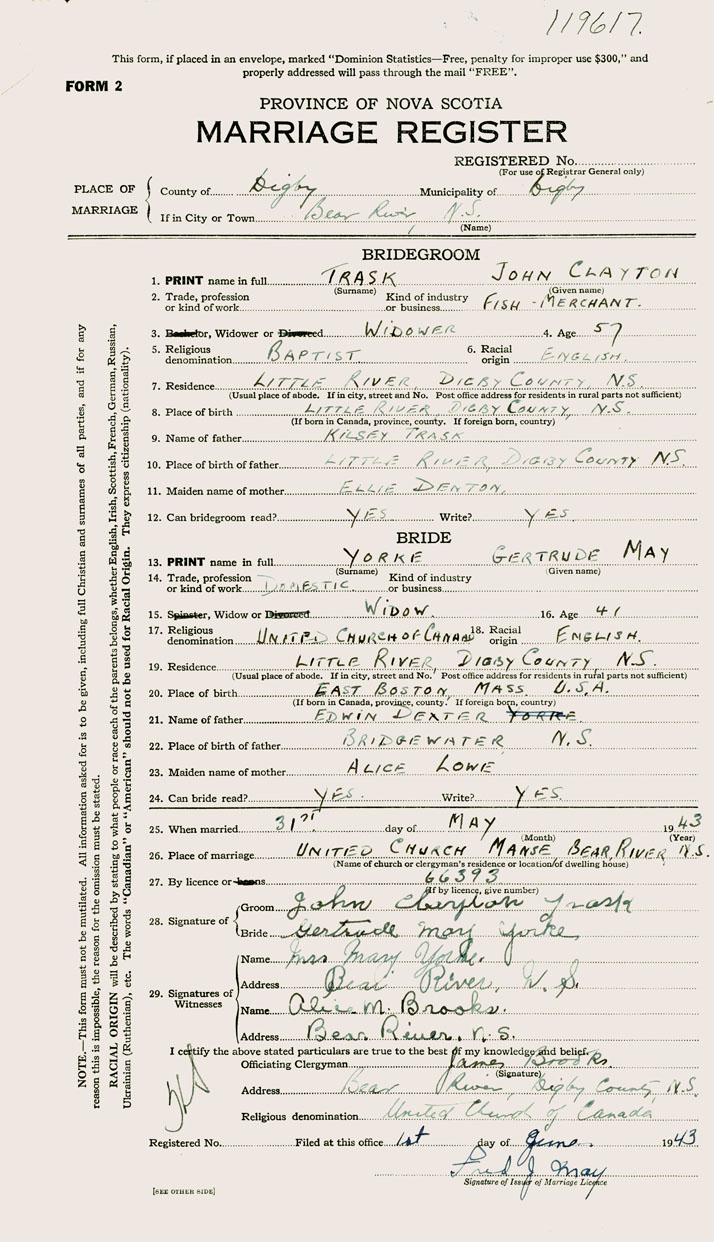 119617.
This form, if placed in an envelope, marked "Dominion Statistics—Free, penalty for improper use $300," and
properly addressed will pass through the mail "FREE".
FORM 2
PROVINCE OF NOVA SCOTIA
MARRIAGE REGISTER
REGISTERED No.
(For use of Registrar General only)
PLACE OF MARRIAGE
County of Digby Municipality of Digby
If in City or Town Bear River N.S.
(Name)
BRIDEGROOM
1. PRINT name in full TRASK JOHN CLAYTON
(Surname) (Given name)
2. Trade, profession or kind of work Kind of industry or business FISH-MERCHANT.
3. Bachelor, Widower or Divorced WIDOWER 4. Age 57
5. Religious denomination BAPTIST 6. Racial origin ENGLISH.
7. Residence LITTLE RIVER, DIGBY COUNTY, N.S.
(Usual place of abode. If in city, street and No. Post office address for residents in rural parts not sufficient)
8. Place of birth LITTLE RIVER, DIGBY COUNTY, N.S.
(If born in Canada, province, county. If foreign born, country)
9. Name of father KILSEY TRASK
10. Place of birth of father LITTLE RIVER, DIGBY COUNTY N.S.
11. Maiden name of mother ELLIE DENTON.
12. Can bridegroom read? YES Write? YES.
BRIDE
13. PRINT name in full YORKE GERTRUDE MAY
(Surname) (Given name)
14. Trade, profession or kind of work DOMESTIC. Kind of industry or business
15. Spinster, Widow or Divorced WIDOW. 16. Age 41
17. Religious denomination UNITED CHURCH OF CANADA 18. Racial origin ENGLISH.
19. Residence LITTLE RIVER, DIGBY COUNTY, N.S.
(Usual place of abode. If in city, street and No. Post office address for residents in rural parts not sufficient)
20. Place of birth EAST BOSTON, MASS. U.S.A.
(If born in Canada, province, county. If foreign born, country)
21. Name of father EDWIN DEXTER YORKE
22. Place of birth of father BRIDGEWATER, N.S.
23. Maiden name of mother ALICE LOWE
24. Can bride read? YES. Write? YES.
25. When married 31st day of MAY 1943
(Month) (Year)
26. Place of marriage UNITED CHURCH MANSE, BEAR RIVER N.S.
(Name of church or clergyman's residence or location of dwelling house)
27. By licence or banns 66393
(If by licence, give number)
28. Signature of
Groom John Clayton Trask
Bride Gertrude May Yorke
29. Signatures of Witnesses
Name Mrs Mary Yorke.
Address Bear River, N.S.
Name Alice M. Brooks.
Address Bear River, N.S.
I certify the above stated particulars are true to the best of my knowledge and belief.
Officiating Clergyman James Brooks.
(Signature)
Address Bear River, Digby County, N.S.
Religious denomination United Church of Canada
Registered No. Filed at this office 1st day of June 1943
Fred J. May
Signature of Issuer of Marriage Licence
[SEE OTHER SIDE]
NOTE.—This form must not be mutilated. All information asked for is to be given, including full Christian and surnames of all parties, and if for any
reason this is impossible, the reason for the omission must be stated.
RACIAL ORIGIN will be described by stating to what people or race each of the parents belongs, whether English, Irish, Scottish, French, German, Russian,
Ukrainian (Ruthenian), etc. The words "Canadian" or "American" should not be used for Racial Origin. They express citizenship (nationality).